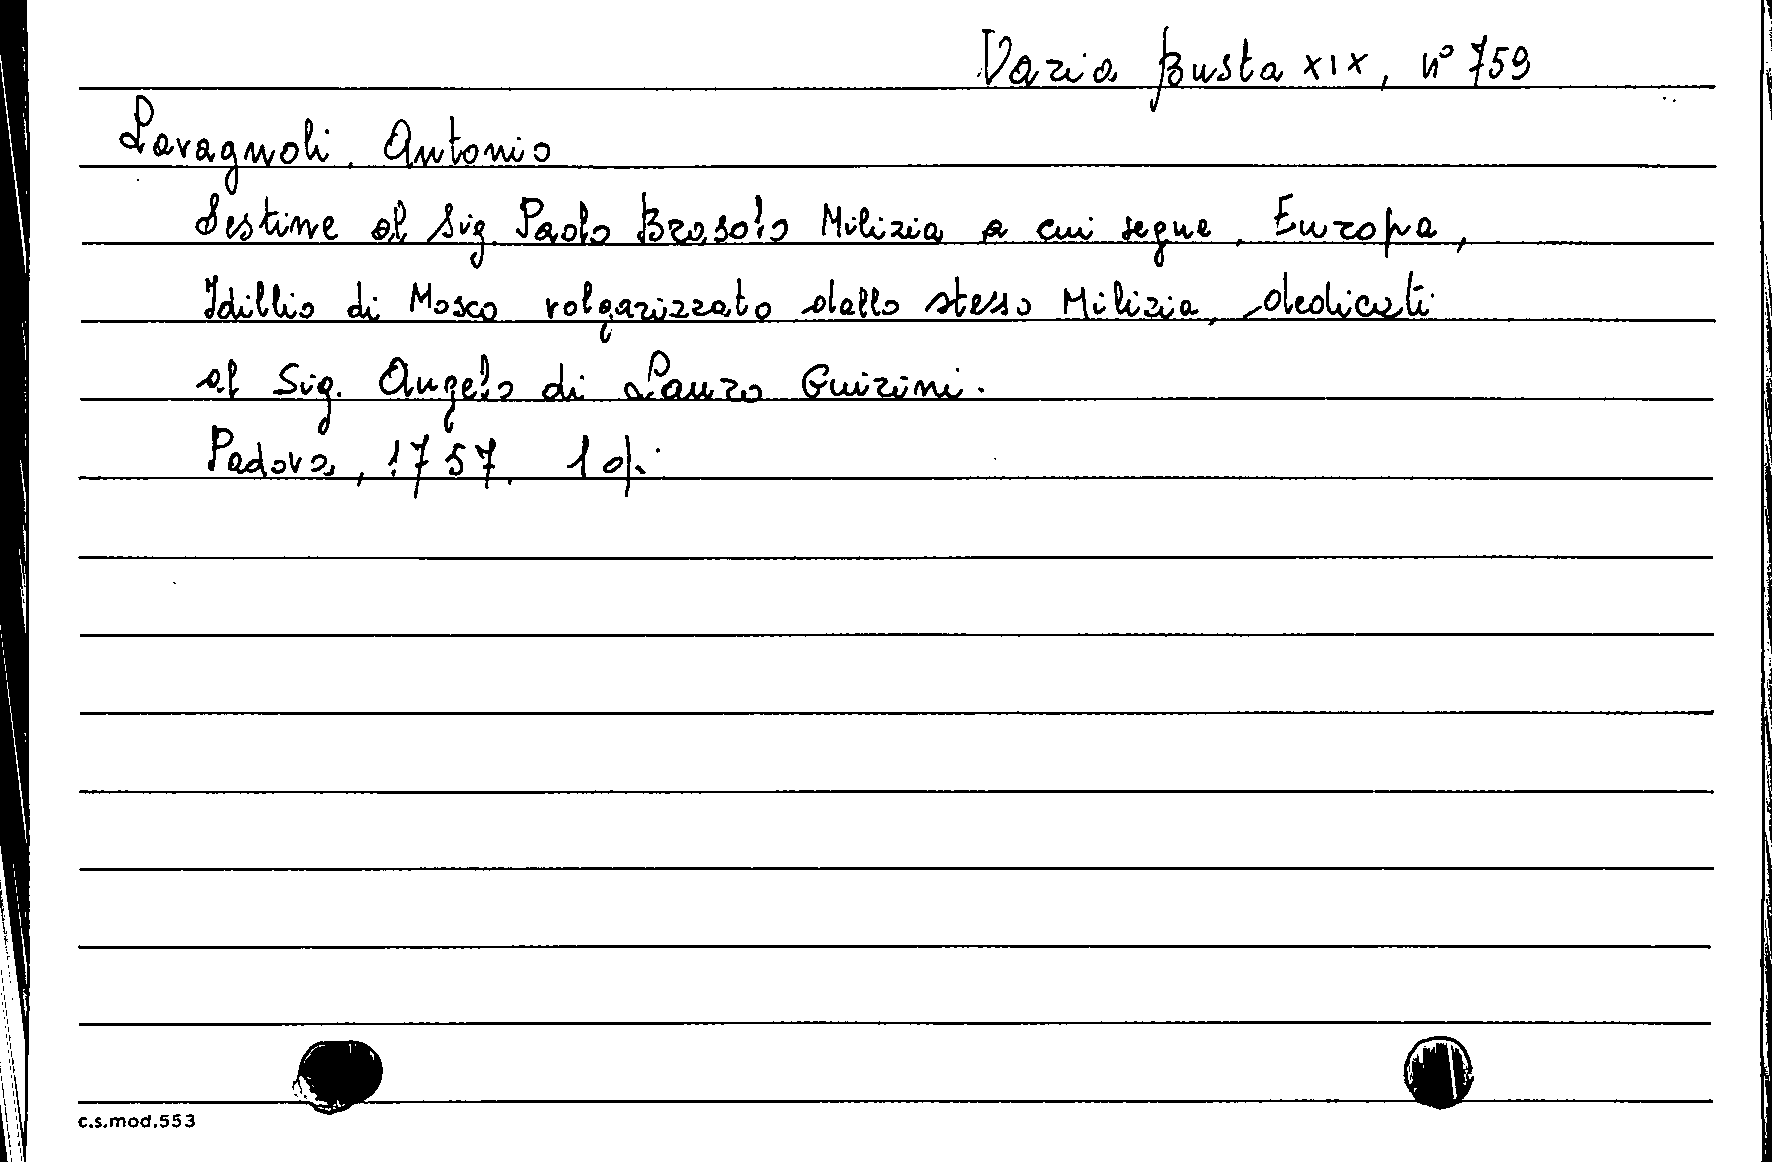 Varia Busta XIX, n° 759
Lavagnoli, Antonio
Sestine al Sig. Paolo Brasolo Milizia a cui segue, Europa,
Idillio di Mosco volgarizzato dallo stesso Milizia, dedicati
al Sig. Angelo di Lauro Guirini.
Padova, 1757. 1 op.
c.s.mod.553